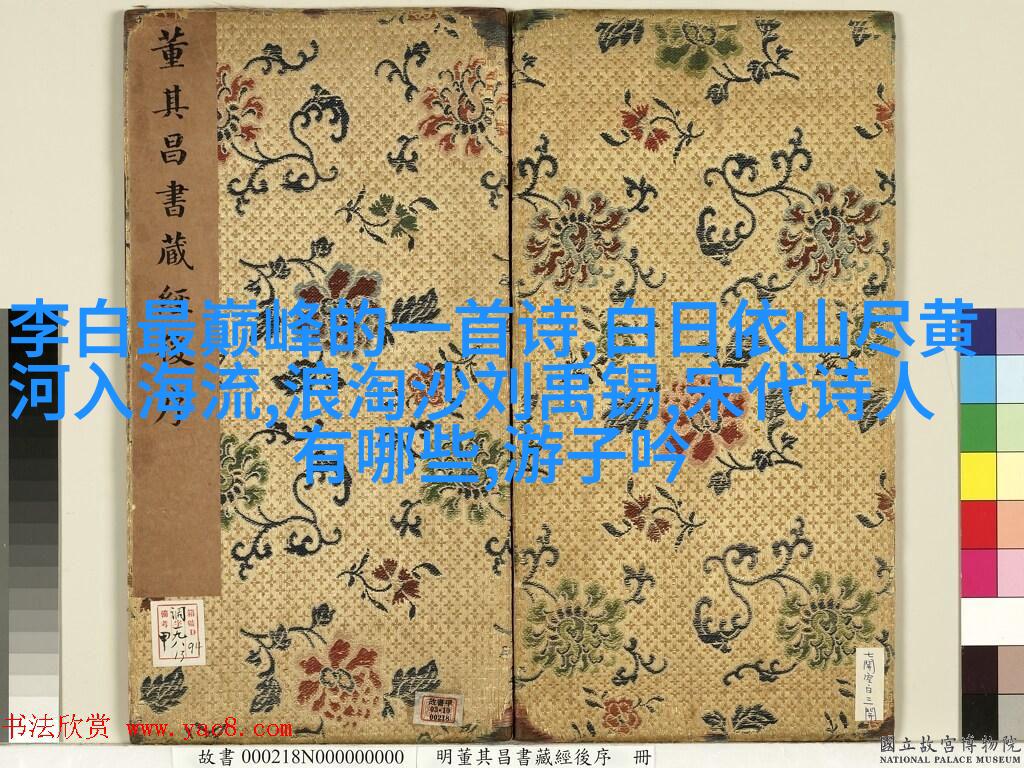 董其昌書藏經後序
李白最巅峰的一首诗,白日依山尽黄
河入海流,浪淘沙刘禹锡,宋代诗人
有哪些,游子吟
故書甲
03-10
00218
七開空白三開
书法欣赏 www.yac8.com
故書 000218N000000000
明董其昌書藏經後序 冊
國立故宮博物院
NATIONAL PALACE MUSEUM